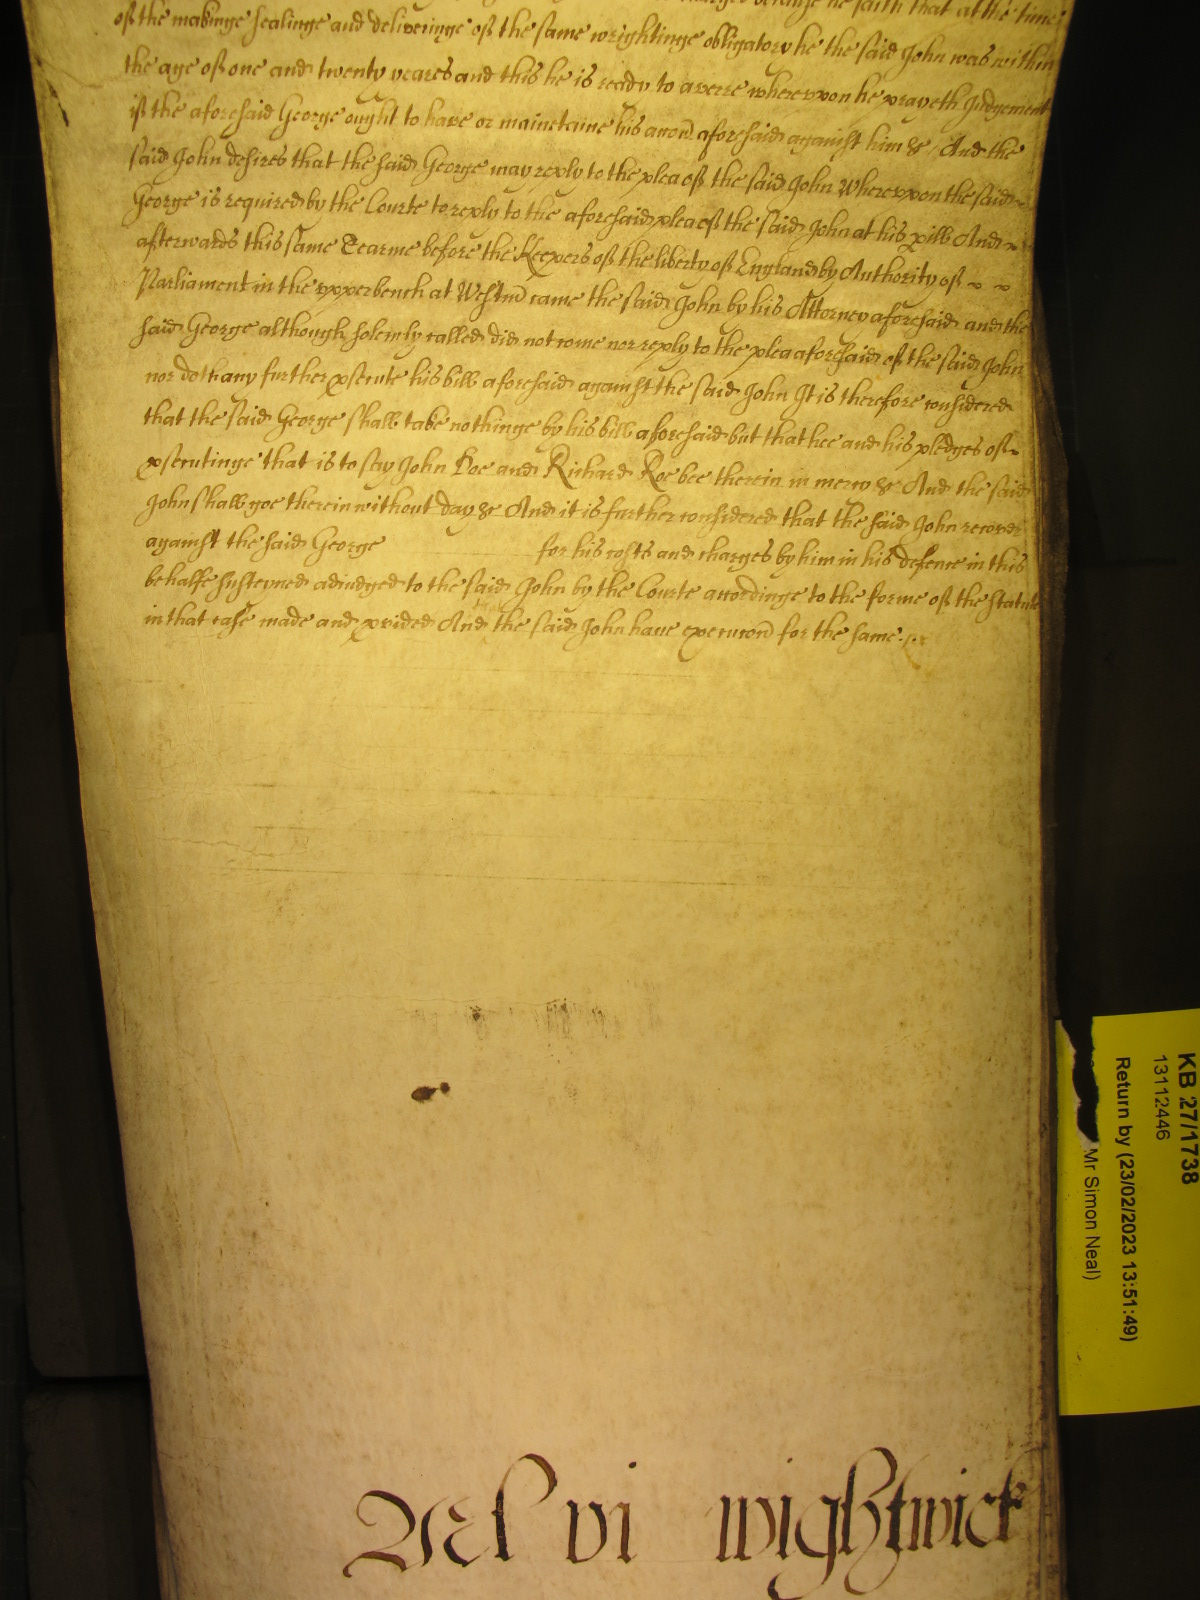 because he saith that at the time
of the makinge sealinge and deliveringe of the same wrightinge obligatory he the said John was within
the age of one and twenty yeares and this he is ready to averre wherevpon he prayeth Judgement
if the aforesaid George ought to have or mainetaine his accon aforesaid against him &c And the
said John desires that the said George may reply to the plea of the said John Wherevpon the said
George is required by the Courte to reply to the aforesaid plea of the said John at his pill And
afterwards this same Tearme before the Keepers of the liberty of England by Authority of
Parliament in the vpperbench at Westm came the said John by his Attorney aforesaid and the
said George although solemly called did not come nor reply to the plea aforesaid of the said John
nor doth any further psecute his bill aforesaid against the said John It is therefore considered
that the said George shall take nothinge by his bill aforesaid but that hee and his pledges of
psecutinge that is to say John Doe and Richard Roe bee therein in mercy &c And the said
John shall goe therein without day &c And it is further considered that the said John recover
against the said George for his costs and charges by him in his defence in this
behalfe susteyned adiudged to the said John by the Courte accordinge to the forme of the Statute
in that case made and pvided And the said John have execucon for the same
vi wightwick
KB 27/1738
13112446
Return by (23/02/2023 13:51:49)
Mr Simon Neal)